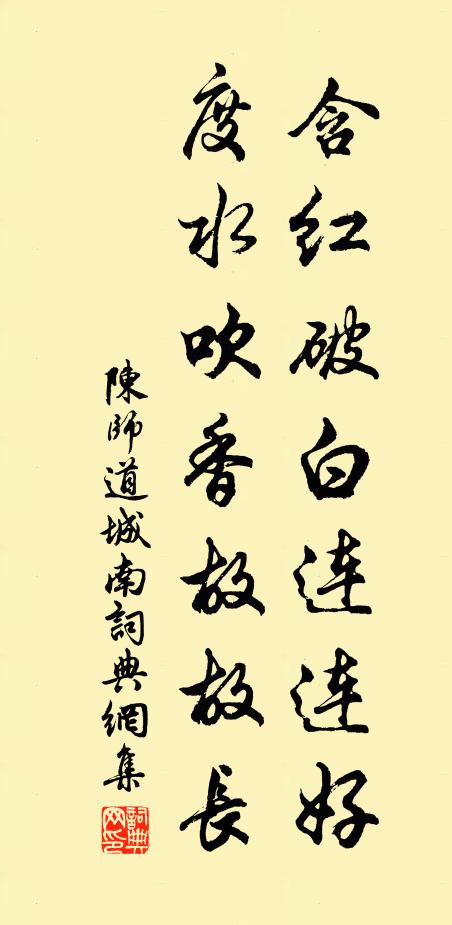 含紅破白連連好
度水吹香故故長
陳師道城南詞典網集
詞典
网印